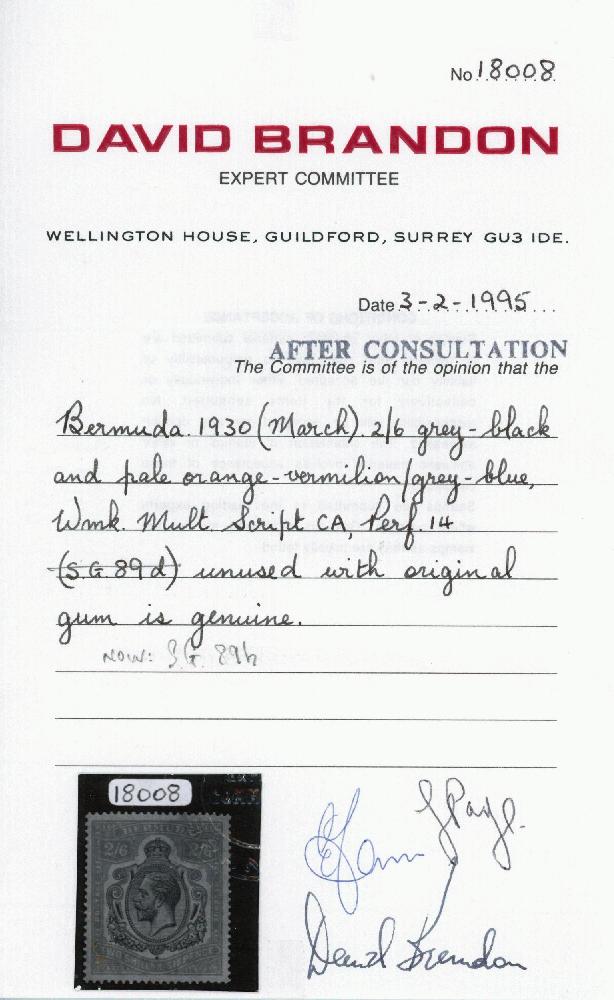 No. 18008
DAVID BRANDON
EXPERT COMMITTEE
WELLINGTON HOUSE, GUILDFORD, SURREY GU3 IDE.
Date 3-2-1995
AFTER CONSULTATION
The Committee is of the opinion that the
Bermuda. 1930 (March). 2/6 grey-black
and pale orange-vermilion/grey-blue,
Wmk. Mult. Script CA, Perf. 14
(S.G. 89d) unused with original
gum is genuine.
NOW: S.G. 89h
18008
BERMUDA
2/6 2/6
David Brandon